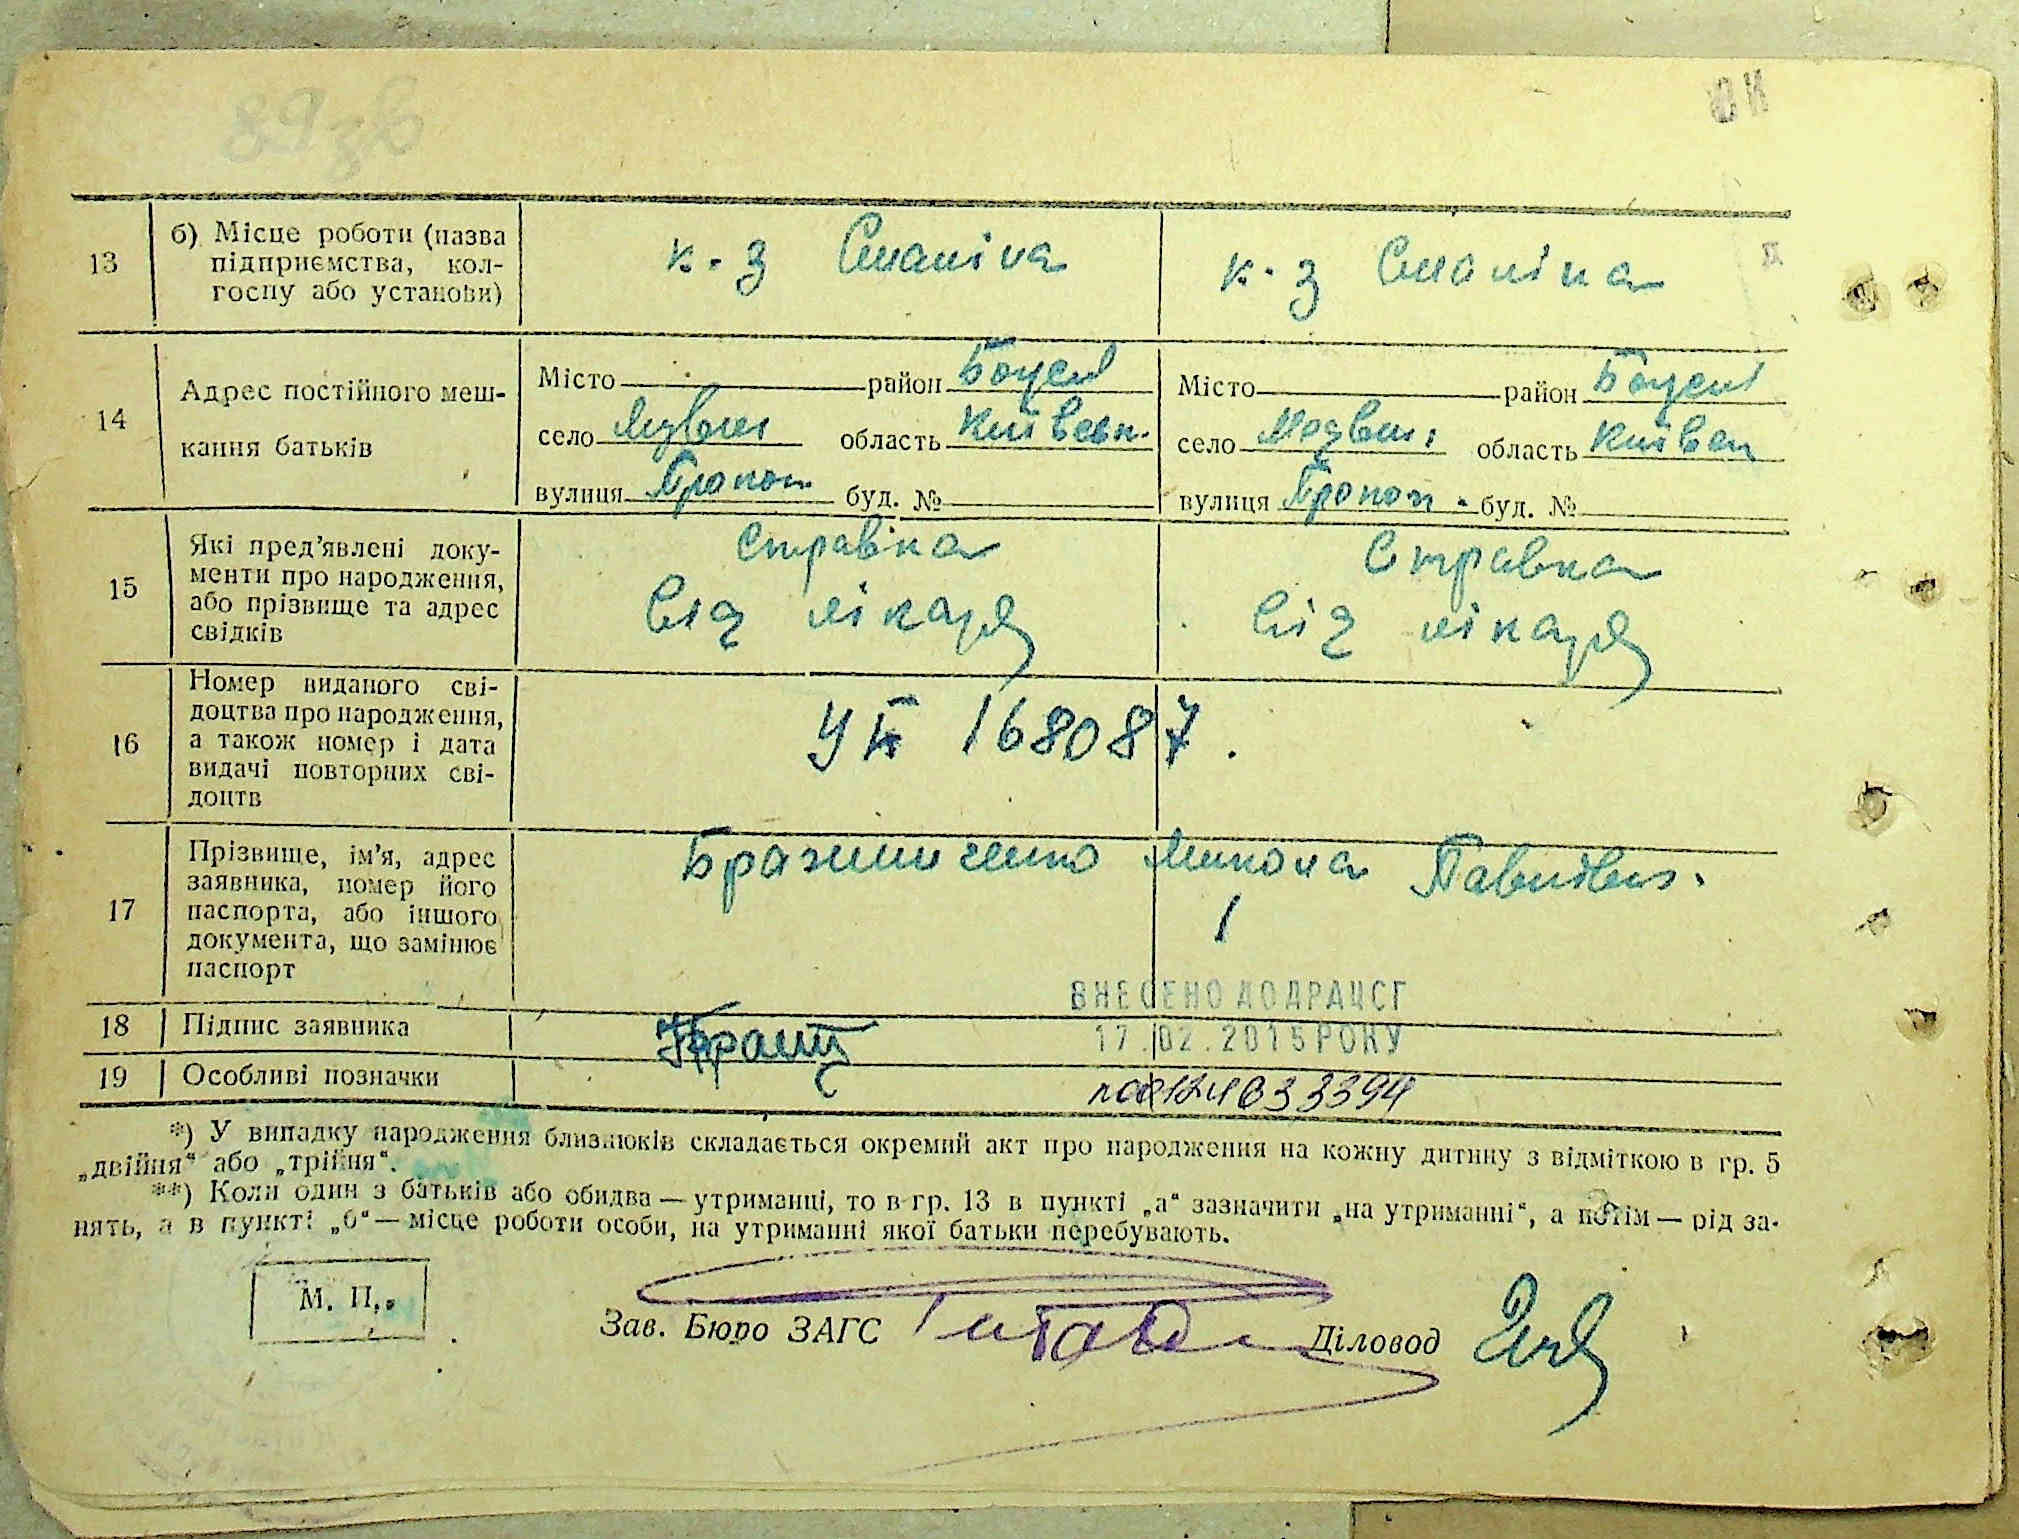 89зв
13
б) Місце роботи (назва
підприємства, кол-
госпу або установи)
к-з Сталіна
к-з Сталіна
14
Адрес постійного меш-
кання батьків
Місто район Богусл
село Медвин область Київськ.
вулиця буд. №
Місто район Богусл
село Медвин, область Київськ
вулиця буд. №
15
Які пред'явлені доку-
менти про народження,
або прізвище та адрес
свідків
Справка
від лікаря
Справка
від лікаря
16
Номер виданого сві-
доцтва про народження,
а також номер і дата
видачі повторних сві-
доцтв
УБ 168087.
17
Прізвище, ім'я, адрес
заявника, номер його
паспорта, або іншого
документа, що замінює
паспорт
Микола Павлович.
ВНЕСЕНО ДО ДРАЦСГ
17.02.2015 РОКУ
18
Підпис заявника
19
Особливі позначки
*) У випадку народження близнюків складається окремий акт про народження на кожну дитину з відміткою в гр. 5
„двійня“ або „трійня“.
**) Коли один з батьків або обидва — утриманці, то в гр. 13 в пункті „а“ зазначити „на утриманні“, а потім — рід за-
нять, а в пункті „б“ — місце роботи особи, на утриманні якої батьки перебувають.
М. П.
Зав. Бюро ЗАГС Діловод